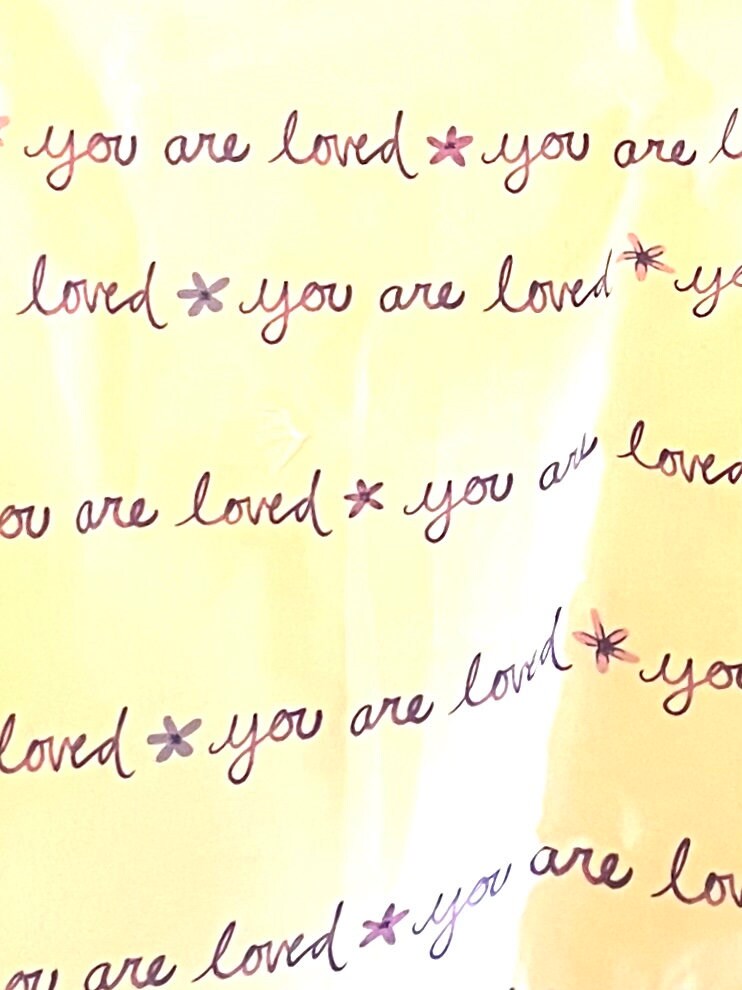 you are loved you are l
loved you are loved yo
ou are loved you are loved
loved you are loved you
ou are loved you are lov